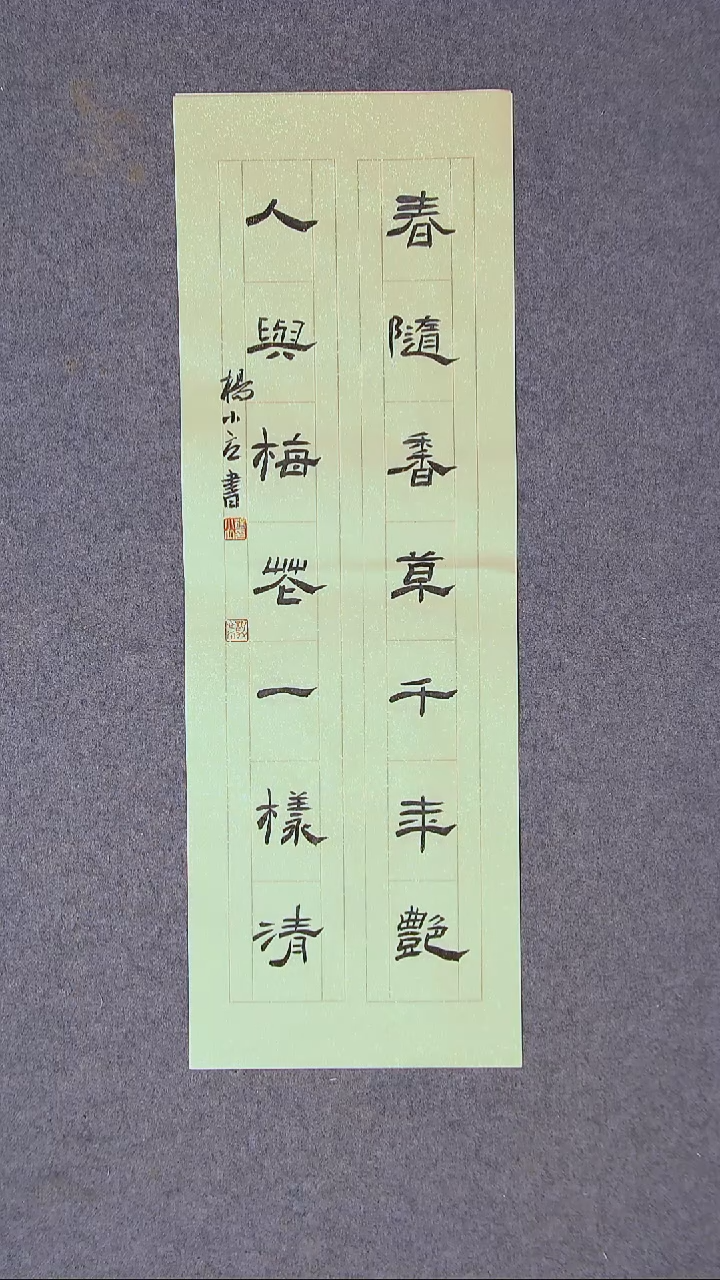 春隨香草千年艷
人與梅花一樣清
楊小
書